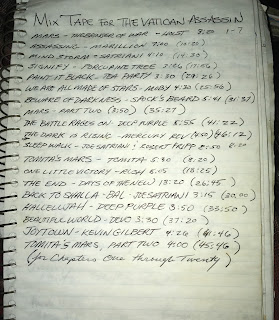 MIX TAPE FOR THE VATICAN ASSASSIN
MARS - THE BRINGER OF WAR - HOLST 8:20 1-?
ASSASSING - MARILLION
MIND STORM - SATRIANI 4:10 (19:30)
SIGNIFY - PORCUPINE TREE 3:26
PAINT IT BLACK - TEA PARTY 3:30 (24:26)
WE ARE ALL MADE OF STARS - MOBY 4:30
BEWARE OF DARKNESS - SPOCK'S BEARD 5:41
MARS - PART TWO (3:50) (35:27)
THE BATTLE RAGES ON - DEEP PURPLE 5:55 (41:22)
THE DARK IS RISING - MERCURY REV (46:12)
SLEEP WALK - JOE SATRIANI & ROBERT FRIPP
TOMITA'S MARS - TOMITA 5:20 (8:20)
ONE LITTLE VICTORY - RUSH 5:05 (13:25)
THE END - DAYS OF THE NEW 13:20 (26:45)
BACK TO SHALLA-BAL - JOE SATRIANI 3:15 (30:00)
HALLELUJAH - DEEP PURPLE 3:50 (33:50)
BEAUTIFUL WORLD - DEVO 3:30 (37:20)
JOYTOWN - KEVIN GILBERT 4:26 (41:46)
TOMITA'S MARS, PART TWO 4:00 (45:46)
(for Chapters One through Twenty)